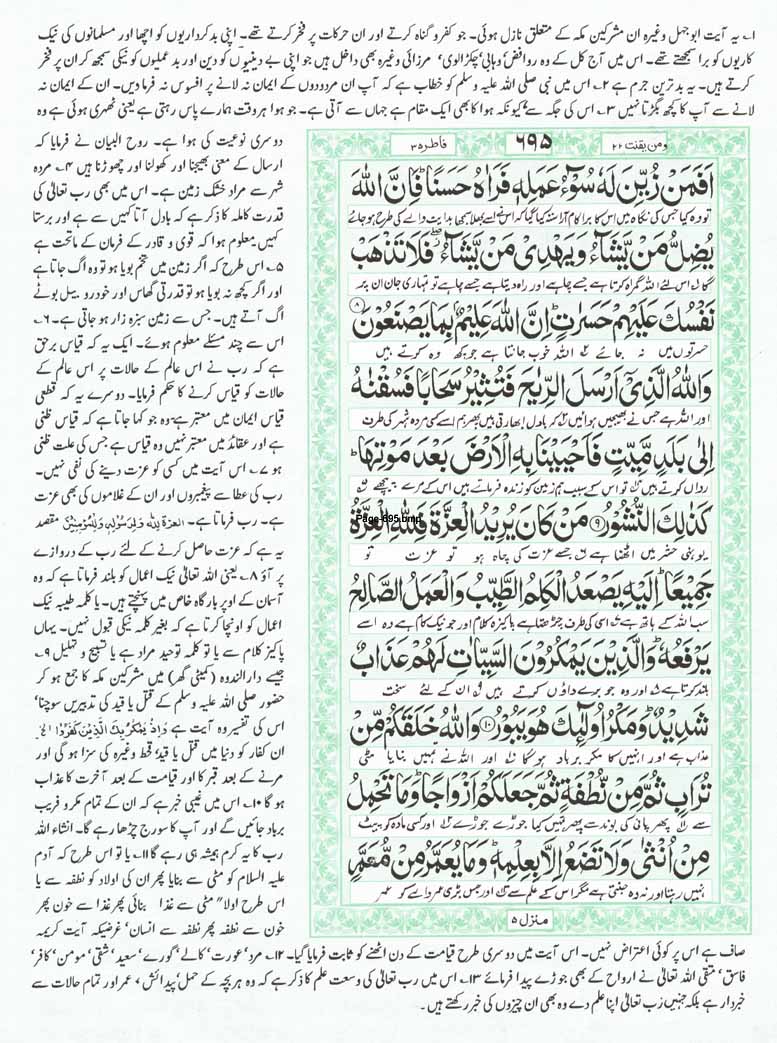 ۱؎ یہ آیت ابوجہل وغیرہ ان مشرکین مکہ کے متعلق نازل ہوئی۔ جو کفر و گناہ کرتے اور ان حرکات پر فخر کرتے تھے۔ اپنی بدکرداریوں کو اچھا اور مسلمانوں کی نیک
کاریوں کو برا سمجھتے تھے۔ اس میں آج کل کے وہ روافض، وہابی، چکڑالوی، مرزائی وغیرہ بھی داخل ہیں جو اپنی بے دینیوں کو دین اور بدعملیوں کو نیکی سمجھ کر ان پر فخر
کرتے ہیں۔ یہ بدترین جرم ہے ۲؎ اس میں نبی صلی اللہ علیہ وسلم کو خطاب ہے کہ آپ ان مردودوں کے ایمان نہ لانے پر افسوس نہ فرما دیں۔ ان کے ایمان نہ
لانے سے آپ کا کچھ بگڑتا نہیں ۳؎ اس کی جگہ سے، کیونکہ ہوا کا بھی ایک مقام ہے جہاں سے آتی ہے۔ جو ہوا ہر وقت ہمارے پاس رہتی ہے یعنی ٹھہری ہوئی ہے وہ
ومن یقنت ۲۲
۶۹۵
فاطر ۳۵
اَفَمَنْ زُيِّنَ لَهٗ سُوْٓءُ عَمَلِهٖ فَرَاٰهُ حَسَنًا ؕ فَاِنَّ اللّٰهَ
تو کیا جس کی نگاہ میں اس کا برا کام آراستہ کیا گیا کہ اس نے اسے بھلا سمجھا ہدایت والے کی طرح ہو جائے
يُضِلُّ مَنْ يَّشَآءُ وَيَهْدِىْ مَنْ يَّشَآءُ ۖ فَلَا تَذْهَبْ
گا اس لئے اللہ گمراہ کرتا ہے جسے چاہے اور راہ دیتا ہے جسے چاہے تو تمہاری جان ان پر
نَفْسُكَ عَلَيْهِمْ حَسَرٰتٍ ؕ اِنَّ اللّٰهَ عَلِيْمٌۢ بِمَا يَصْنَعُوْنَ ۸
حسرتوں میں نہ جائے اللہ خوب جانتا ہے جو کچھ وہ کرتے ہیں
وَاللّٰهُ الَّذِىْٓ اَرْسَلَ الرِّيٰحَ فَتُثِيْرُ سَحَابًا فَسُقْنٰهُ
اور اللہ ہے جس نے بھیجیں ہوائیں کہ بادل ابھارتی ہیں پھر ہم اسے کسی مردہ شہر کی طرف
اِلٰى بَلَدٍ مَّيِّتٍ فَاَحْيَيْنَا بِهِ الْاَرْضَ بَعْدَ مَوْتِهَا ؕ
رواں کرتے ہیں تو اس کے سبب ہم زمین کو زندہ فرماتے ہیں اس کے مرے پیچھے
كَذٰلِكَ النُّشُوْرُ ۹ مَنْ كَانَ يُرِيْدُ الْعِزَّةَ فَلِلّٰهِ الْعِزَّةُ
Page-695.bmp
یوں ہی حشر میں اٹھنا ہے جسے عزت کی چاہ ہو تو عزت تو
جَمِيْعًا ؕ اِلَيْهِ يَصْعَدُ الْكَلِمُ الطَّيِّبُ وَالْعَمَلُ الصَّالِحُ
سب اللہ کے ہاتھ ہے اسی کی طرف چڑھتا ہے پاکیزہ کلام اور جو نیک کام ہے وہ اسے
يَرْفَعُهٗ ؕ وَالَّذِيْنَ يَمْكُرُوْنَ السَّيِّاٰتِ لَهُمْ عَذَابٌ
بلند کرتا ہے اور وہ جو برے داؤں کرتے ہیں ان کے لئے سخت
شَدِيْدٌ ؕ وَمَكْرُ اُولٰٓئِكَ هُوَ يَبُوْرُ ۱۰ وَاللّٰهُ خَلَقَكُمْ مِّنْ
عذاب ہے اور انہیں کا مکر برباد ہوگا اور اللہ نے تمہیں بنایا مٹی
تُرَابٍ ثُمَّ مِنْ نُّطْفَةٍ ثُمَّ جَعَلَكُمْ اَزْوَاجًا ؕ وَمَا تَحْمِلُ
سے پھر پانی کی بوند سے پھر تمہیں کیا جوڑے جوڑے اور کسی مادہ کو پیٹ
مِنْ اُنْثٰى وَلَا تَضَعُ اِلَّا بِعِلْمِهٖ ؕ وَمَا يُعَمَّرُ مِنْ مُّعَمَّرٍ
نہیں رہتا اور نہ وہ جنتی ہے مگر اس کے علم سے اور جس بڑی عمر والے کو عمر
منزل ۵
دوسری نوعیت کی ہوا ہے۔ روح البیان نے فرمایا کہ
ارسال کے معنی بھیجنا اور کھولنا اور چھوڑنا ہیں ۴؎ مردہ
شہر سے مراد خشک زمین ہے۔ اس میں بھی رب تعالیٰ کی
قدرت کاملہ کا ذکر ہے کہ بادل آتا کہیں سے ہے اور برستا
کہیں معلوم ہوا کہ قوی و قادر کے فرمان کے ماتحت ہے
۵؎ اس طرح کہ اگر زمین میں تخم بویا ہو تو وہ اگ جاتا ہے
اور اگر کچھ نہ بویا ہو تو قدرتی گھاس اور خودرو بیل بوٹے
اگ آتے ہیں۔ جس سے زمین سبزہ زار ہو جاتی ہے۔ ۶؎
اس سے چند مسئلے معلوم ہوئے۔ ایک یہ کہ قیاس برحق
ہے کہ رب نے اس عالم کے حالات پر اس عالم کے
حالات کو قیاس کرنے کا حکم فرمایا۔ دوسرے یہ کہ قطعی
قیاس ایمان میں معتبر ہے وہ جو کہا جاتا ہے کہ قیاس ظنی
ہے اور عقائد میں معتبر نہیں وہ قیاس ہے جس کی علت ظنی
ہو ۷؎ اس آیت میں کسی کو عزت دینے کی نفی نہیں۔
رب کی عطا سے پیغمبروں اور ان کے غلاموں کی بھی عزت
ہے۔ رب فرماتا ہے۔ العزة لله ولرسوله وللمؤمنين مقصد
یہ ہے کہ عزت حاصل کرنے کے لئے رب کے دروازے
پر آؤ ۸؎ یعنی اللہ تعالیٰ نیک اعمال کو بلند فرماتا ہے کہ وہ
آسمان کے اوپر بارگاہ خاص میں پہنچتے ہیں۔ یا کلمہ طیبہ نیک
اعمال کو اونچا کرتا ہے کہ بغیر کلمہ نیکی قبول نہیں۔ یہاں
پاکیز کلام سے یا تو کلمہ توحید مراد ہے یا تسبیح و تہلیل ۹؎
جیسے دارالندوہ (کمیٹی گھر) میں مشرکین مکہ کا جمع ہو کر
حضور صلی اللہ علیہ وسلم کے قتل یا قید کی تدبیریں سوچنا،
اس کی تفسیر وہ آیت ہے وَاِذْ يَمْكُرُ بِكَ الَّذِيْنَ كَفَرُوْا الخ
ان کفار کو دنیا میں قتل یا قید، قحط وغیرہ کی سزا ہو گی اور
مرنے کے بعد قبر کا اور قیامت کے بعد آخرت کا عذاب
ہو گا ۱۰؎ اس میں غیبی خبر ہے کہ ان کے تمام مکر و فریب
برباد جائیں گے اور آپ کا سورج چڑھا رہے گا۔ انشاء اللہ
رب کا یہ کرم ہمیشہ ہی رہے گا ۱۱؎ یا تو اس طرح کہ آدم
علیہ السلام کو مٹی سے بنایا پھر ان کی اولاد کو نطفہ سے یا
اس طرح اولا" مٹی سے غذا بنائی پھر غذا سے خون پھر
خون سے نطفہ پھر نطفہ سے انسان، غرضیکہ آیت کریمہ
صاف ہے اس پر کوئی اعتراض نہیں۔ اس آیت میں دوسری طرح قیامت کے دن اٹھنے کو ثابت فرمایا گیا۔ ۱۲؎ مرد، عورت، کالے، گورے، سعید، شقی، مومن، کافر،
فاسق، متقی اللہ تعالیٰ نے ارواح کے بھی جوڑے پیدا فرمائے ۱۳؎ اس میں رب تعالیٰ کی وسعت علم کا ذکر ہے کہ وہ ہر بچہ کے حمل، پیدائش، عمر اور تمام حالات سے
خبردار ہے بلکہ جنہیں رب تعالیٰ اپنا علم دے وہ بھی ان چیزوں کی خبر رکھتے ہیں۔